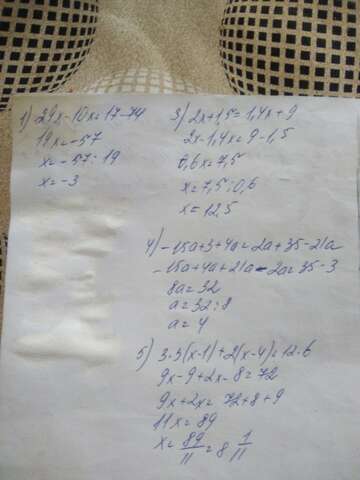 1) 29x-10x=17-74
19x=-57
x=-57:19
x=-3
3) 2x+1,5=1,4x+9
2x-1,4x=9-1,5
0,6x=7,5
x=7,5:0,6
x=12,5
4) -15a+3+4a=2a+35-21a
-15a+4a+21a-2a=35-3
8a=32
a=32:8
a=4
5) 3·3(x-1)+2(x-4)=12·6
9x-9+2x-8=72
9x+2x=72+8+9
11x=89
x=89/11=8 1/11